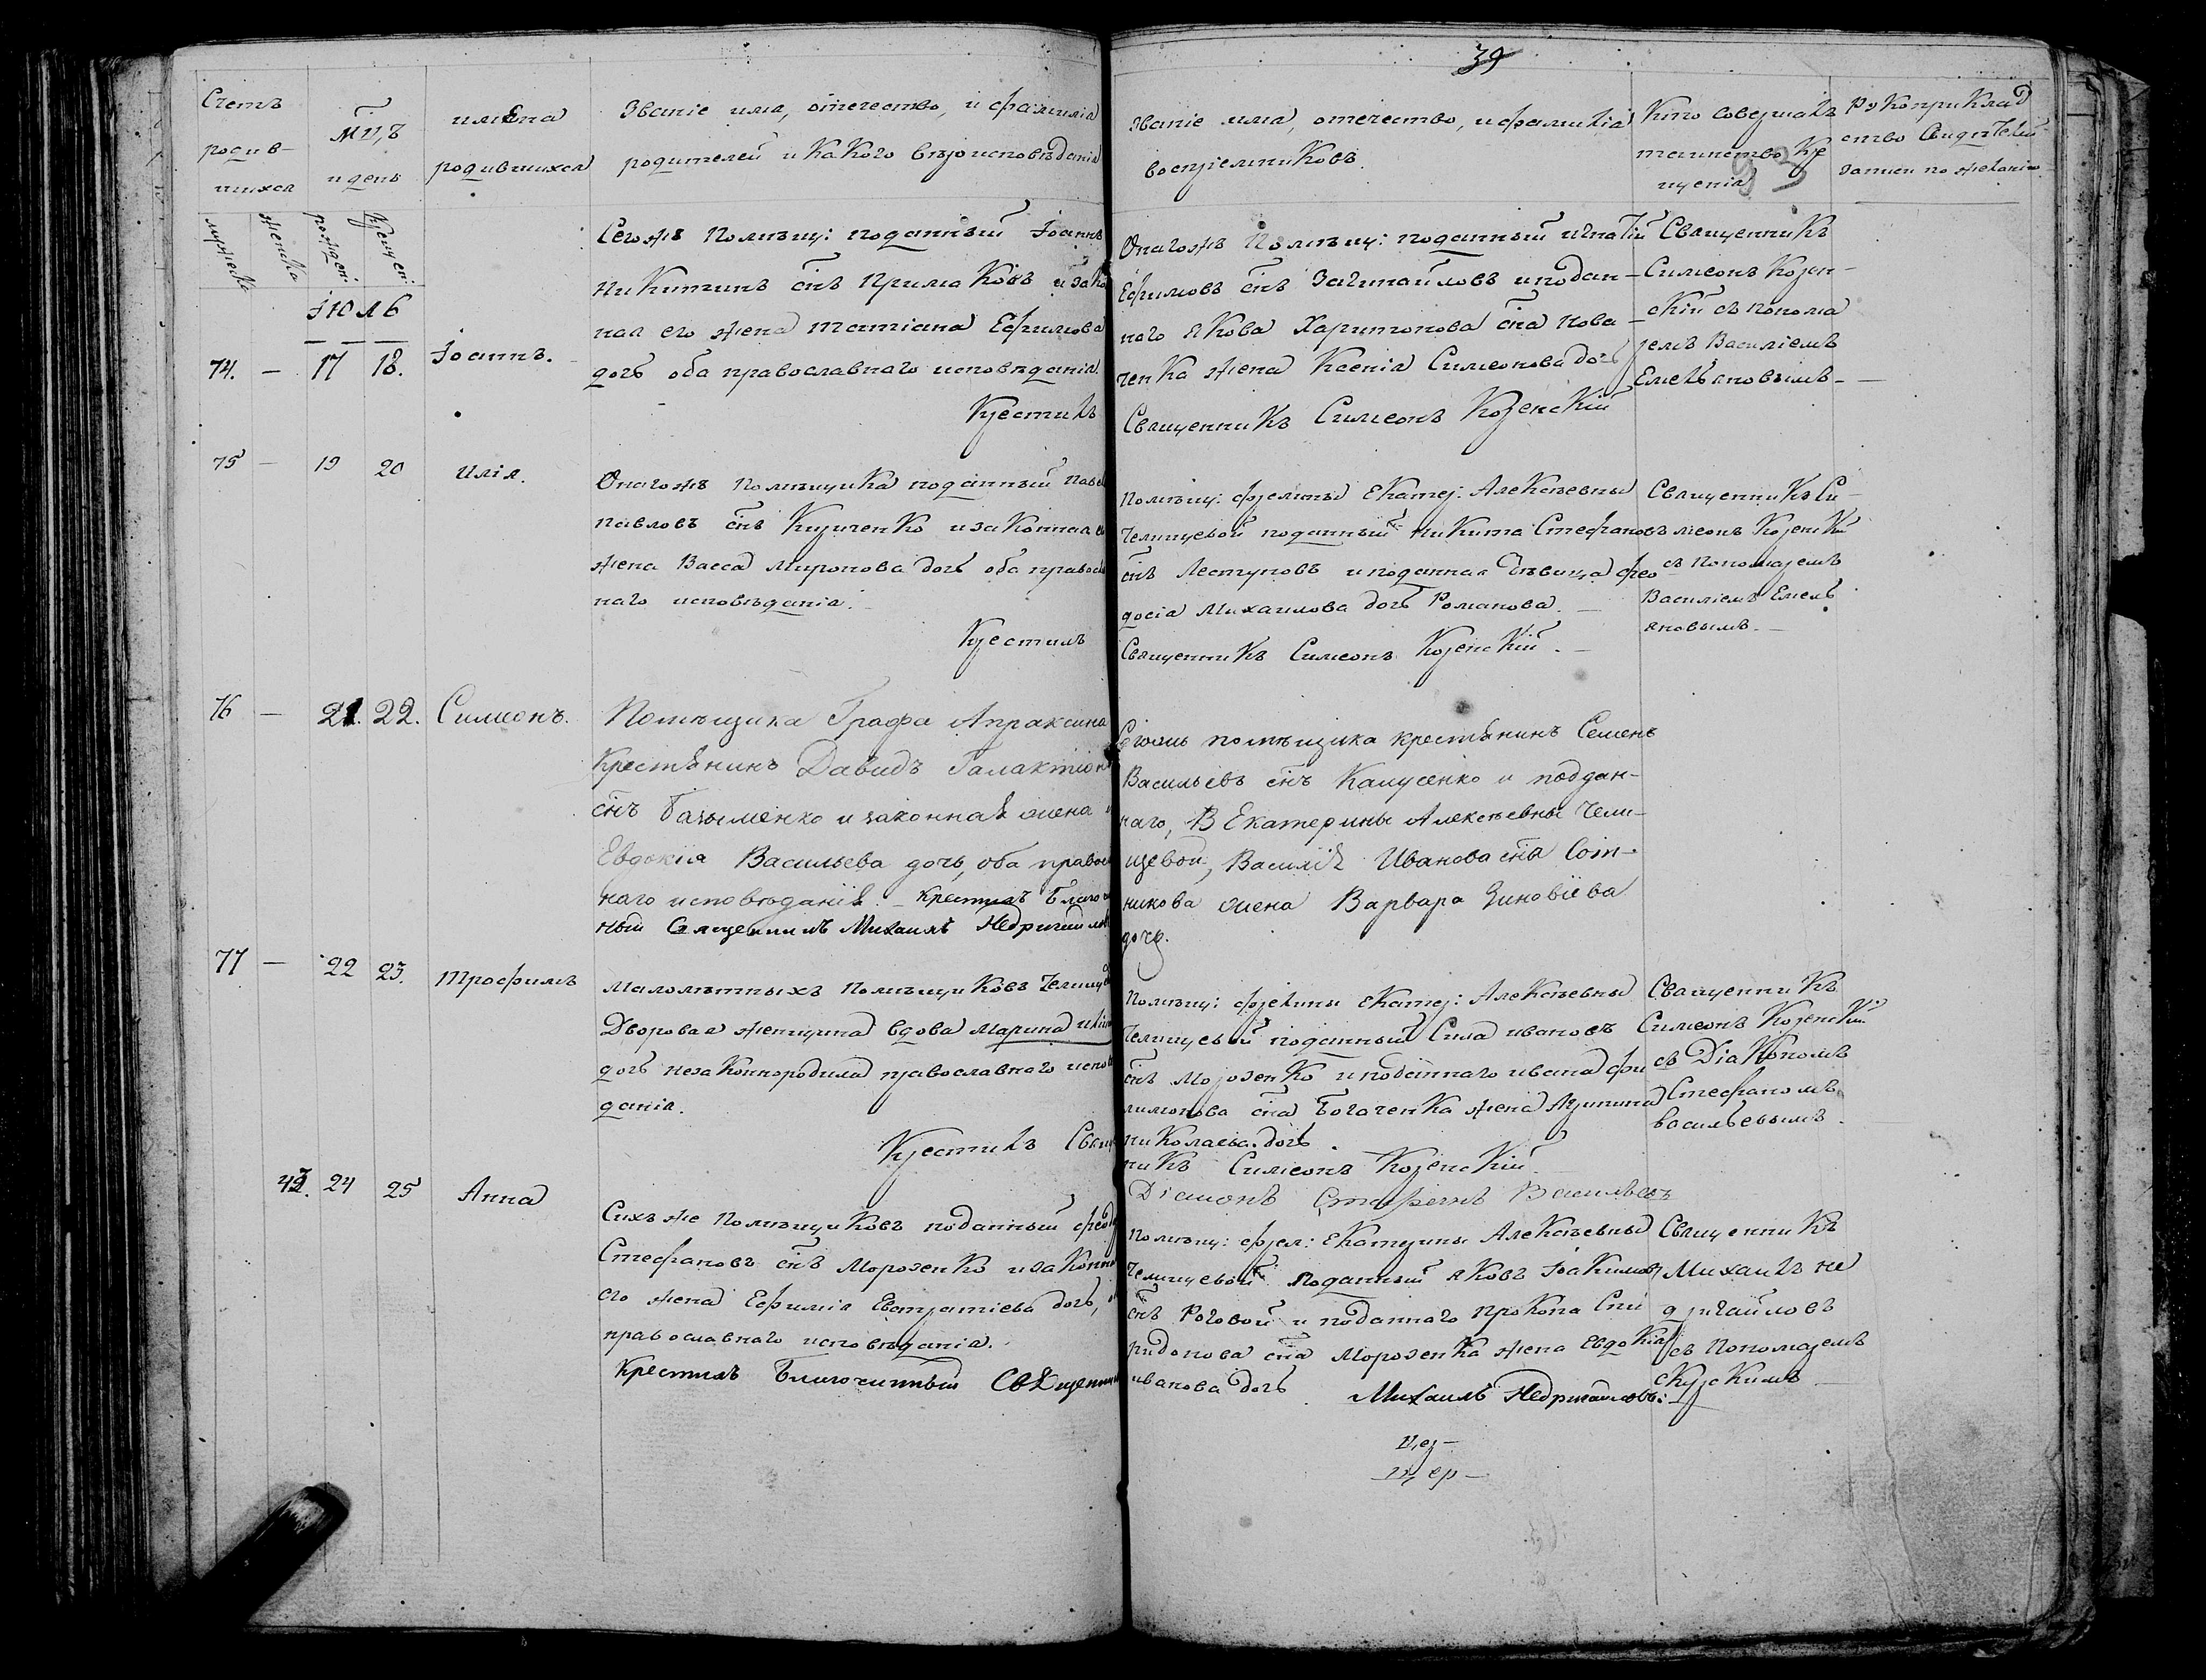 39
93
Счетъ
родив-
шихся
мужеска
женска
М-ц,ъ
и день
рождені:
крещені:
имена
родившихся
Званіе имя, отечество, и фамилія
родителей и какого вѣроисповѣданія
Званіе имя, отечество, и фамилія
воспріемниковъ.
Кто совершалъ
таинство кре
щенія
Рукоприклад
ство свидѣтелей
записи по желанію
Іюль
74. — 17 18. Іоаннъ.
Сегожъ помѣщ: подданный Іоаннъ
Никитинъ снъ Примаковъ и зако
ная его жена Татіана Ефимова
дочь оба православнаго исповѣданія.
Крестилъ
Онагожъ помѣщ: подданный Игнатій
Ефимовъ снъ Загинайловъ и поддан-
наго Якова Харитонова сна Нова-
ченка жена Ксенія Симеонова дочь
Священникъ Симеонъ Козенскій
Священникъ
Симеонъ Козен-
скій съ понома
ремъ Василіемъ
Емельяновымъ-
75 — 19 20 Илія.
Онагожъ помѣщика подданный Павел
Павловъ снъ Киріченко и законная е
жена Васса Миронова дочь оба правосл
наго исповѣданія.
Крестилъ
Помѣщ: фрелины Екатер: Алексѣевны
Челищевой подданный Никита Стефановъ
снъ Лестуновъ и подданная дѣвица Фео
досіа Михаилова дочь Романова.
Священникъ Симеонъ Козенскій.
Священникъ Си-
меонъ Козенскій
съ пономаремъ
Василіемъ Емель
яновымъ.
76 — 21. 22. Симеонъ.
Помѣщика Графа Апраксина
крестьянинъ Давидъ Галактіон
снъ Базыменко и законная жена
Евдокія Васильева дочь, оба правос
наго исповѣданія. - Крестилъ Благочи
ный Священникъ Михаилъ Недригайлов
Сегожъ помѣщика крестьянинъ Семенъ
Васильевъ снъ Капусенко и поддан-
наго, В Екатерины Алексѣевны Чели-
щевой, Василія Иванова сна Сот-
никова жена Варвара Зиновіева
дочь.
77 — 22 23. Трофимъ
Малолѣтныхъ помѣщиковъ Челищев
Дворовая женщина вдова Марина
дочь незаконнородила православнаго испов
данія.
Крестилъ Свящ
Помѣщ: фрелины Екатер: Алексѣевны
Челищевой подданный Сила Ивановъ
снъ Морозенко и подданнаго Ивана Фи
лимонова сна Богаченка жена Ирина
Николаева дочь.
никъ Симеонъ Козенскій.
Діаконъ Стефанъ Васильевъ
Священникъ
Симеонъ Козенскій
съ Діакономъ
Стефаномъ
Васильевымъ.
43. 24 25 Анна
Сихъ же помѣщиковъ подданный Феод
Стефановъ снъ Морозенко и законна
его жена Ефимія Евстратіева дочь,
православнаго исповѣданія.
Крестилъ Благочинный Священни
Помѣщ: фрел: Екатерины Алексѣевны
Челищевой подданный Яковъ Іоакимовъ
снъ Роговой и подданнаго Прокопа Спи
ридонова сна Морозенка жена Евдокія
Иванова дочь.
Михаилъ Недригайловъ:
Священникъ
Михаилъ Не
дригайловъ
съ пономаремъ
Скурскимъ